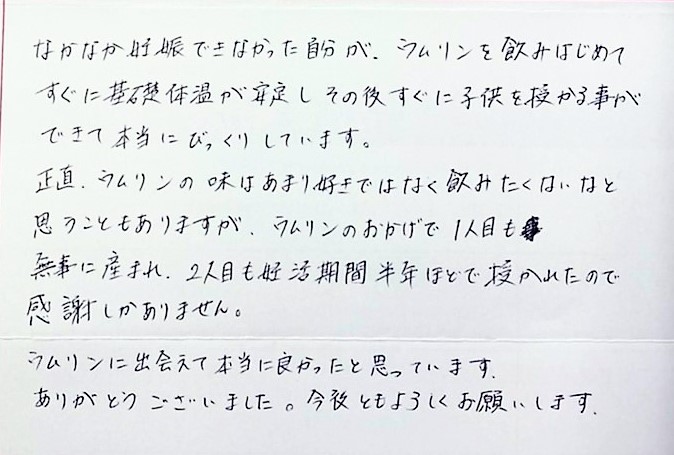 なかなか妊娠できなかった自分が、ウムリンを飲みはじめて
すぐに基礎体温が安定しその後すぐに子供を授かる事が
できて本当にびっくりしています。
正直、ウムリンの味はあまり好きではなく飲みたくないなと
思うこともありますが、ウムリンのおかげで1人目も
無事に産まれ、2人目も妊活期間半年ほどで授かれたので
感謝しかありません。
ウムリンに出会えて本当に良かったと思っています。
ありがとうございました。今後ともよろしくお願いします。